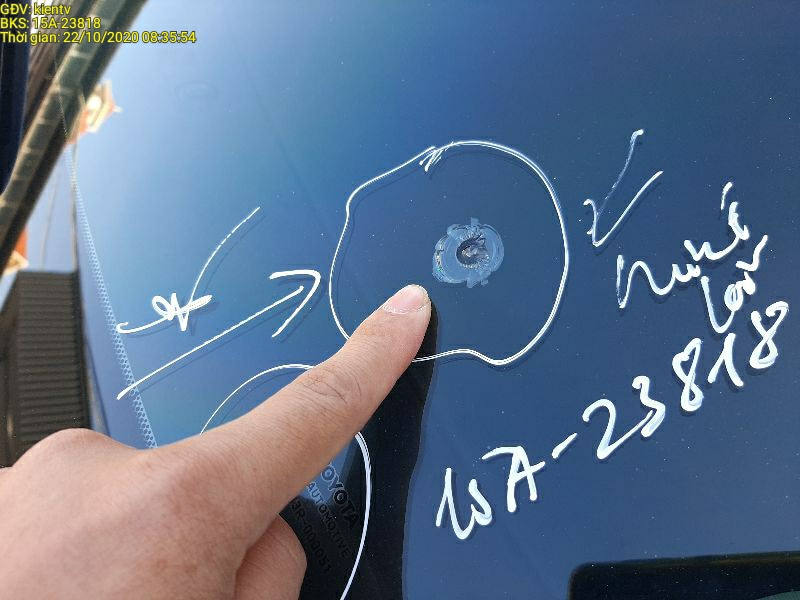 GĐV: kientv
BKS: 15A-23818
Thời gian: 22/10/2020 08:35:54
15A-23818
TOYOTA
AUTOMOTIVE